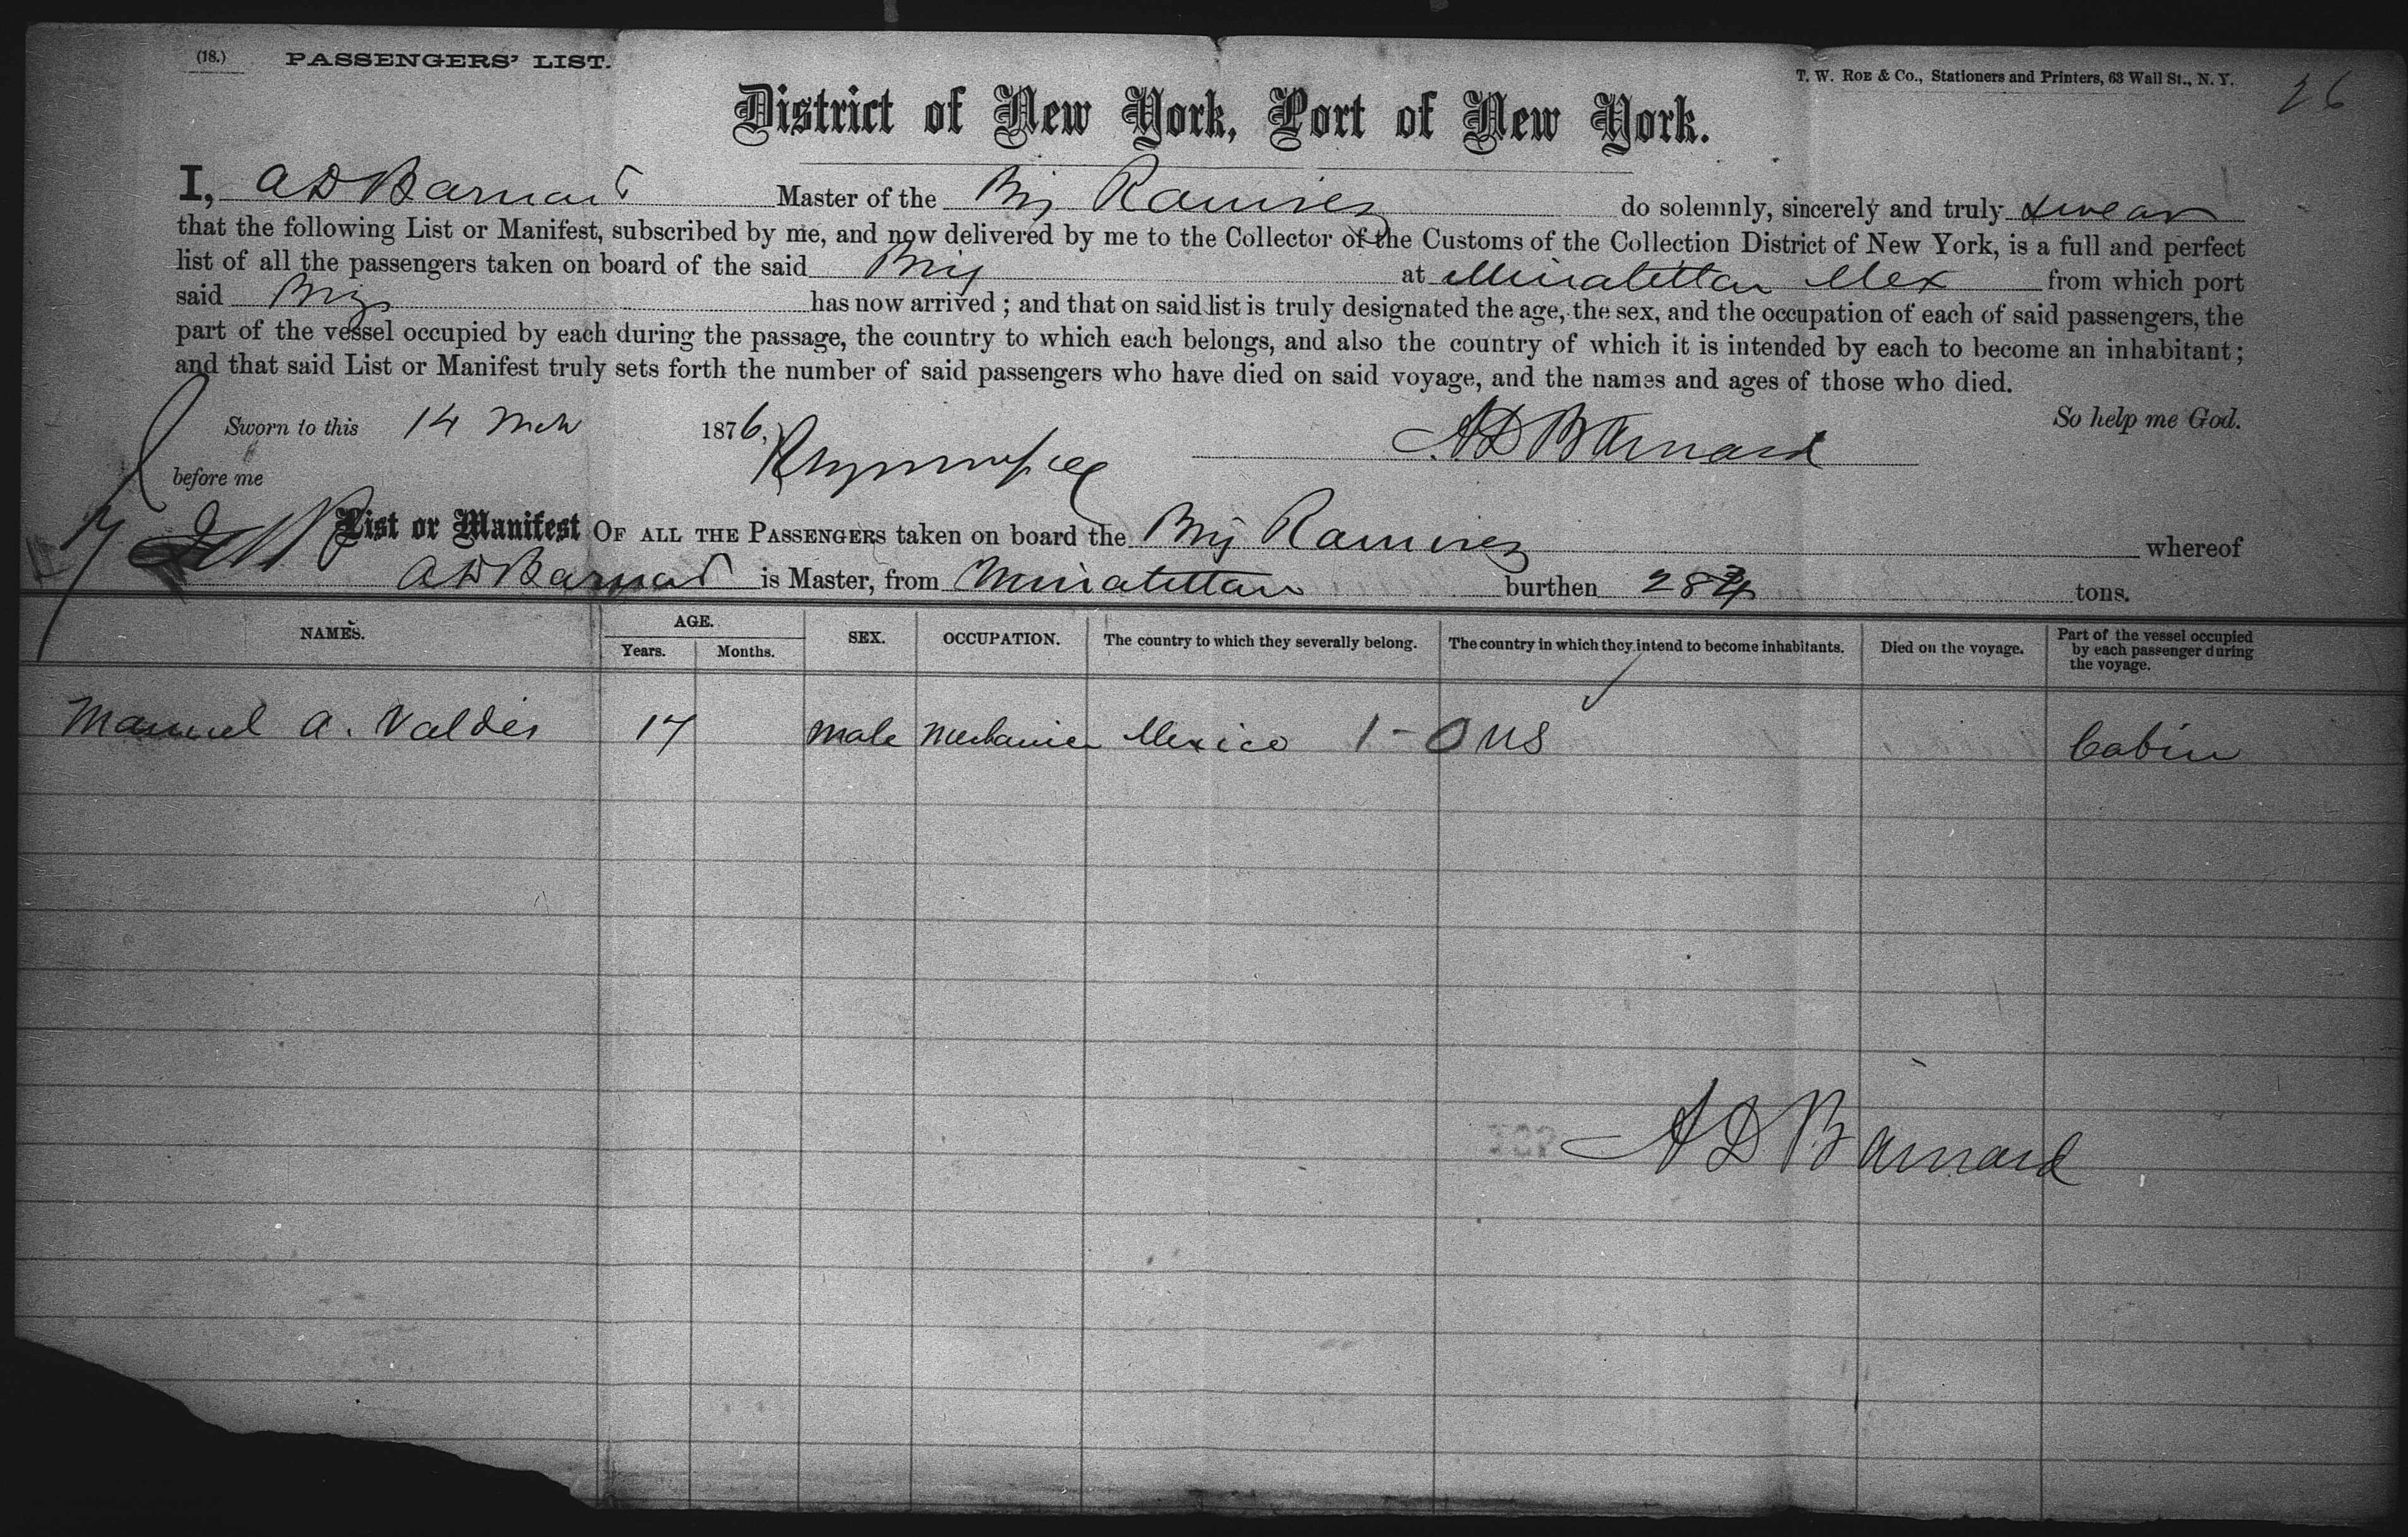 (18.) PASSENGERS' LIST.
T. W. ROE & Co., Stationers and Printers, 63 Wall St., N. Y.
26
District of New York, Port of New York.
I, A D Barnard Master of the Brig Ramirez do solemnly, sincerely and truly swear
that the following List or Manifest, subscribed by me, and now delivered by me to the Collector of the Customs of the Collection District of New York, is a full and perfect
list of all the passengers taken on board of the said Brig at Minatitlan Mex from which port
said Brig has now arrived ; and that on said list is truly designated the age, the sex, and the occupation of each of said passengers, the
part of the vessel occupied by each during the passage, the country to which each belongs, and also the country of which it is intended by each to become an inhabitant ;
and that said List or Manifest truly sets forth the number of said passengers who have died on said voyage, and the names and ages of those who died.
Sworn to this 14 Mch 1876,
So help me God.
A D Barnard
before me
List or Manifest OF ALL THE PASSENGERS taken on board the Brig Ramirez whereof
A D Barnard is Master, from Minatitlan burthen tons.
NAMES. AGE. Years. Months. SEX. OCCUPATION. The country to which they severally belong. The country in which they intend to become inhabitants. Died on the voyage. Part of the vessel occupied by each passenger during the voyage.
Manuel A. Valdes 17 Male Mechanic Mexico 1-0 US Cabin
A D Barnard